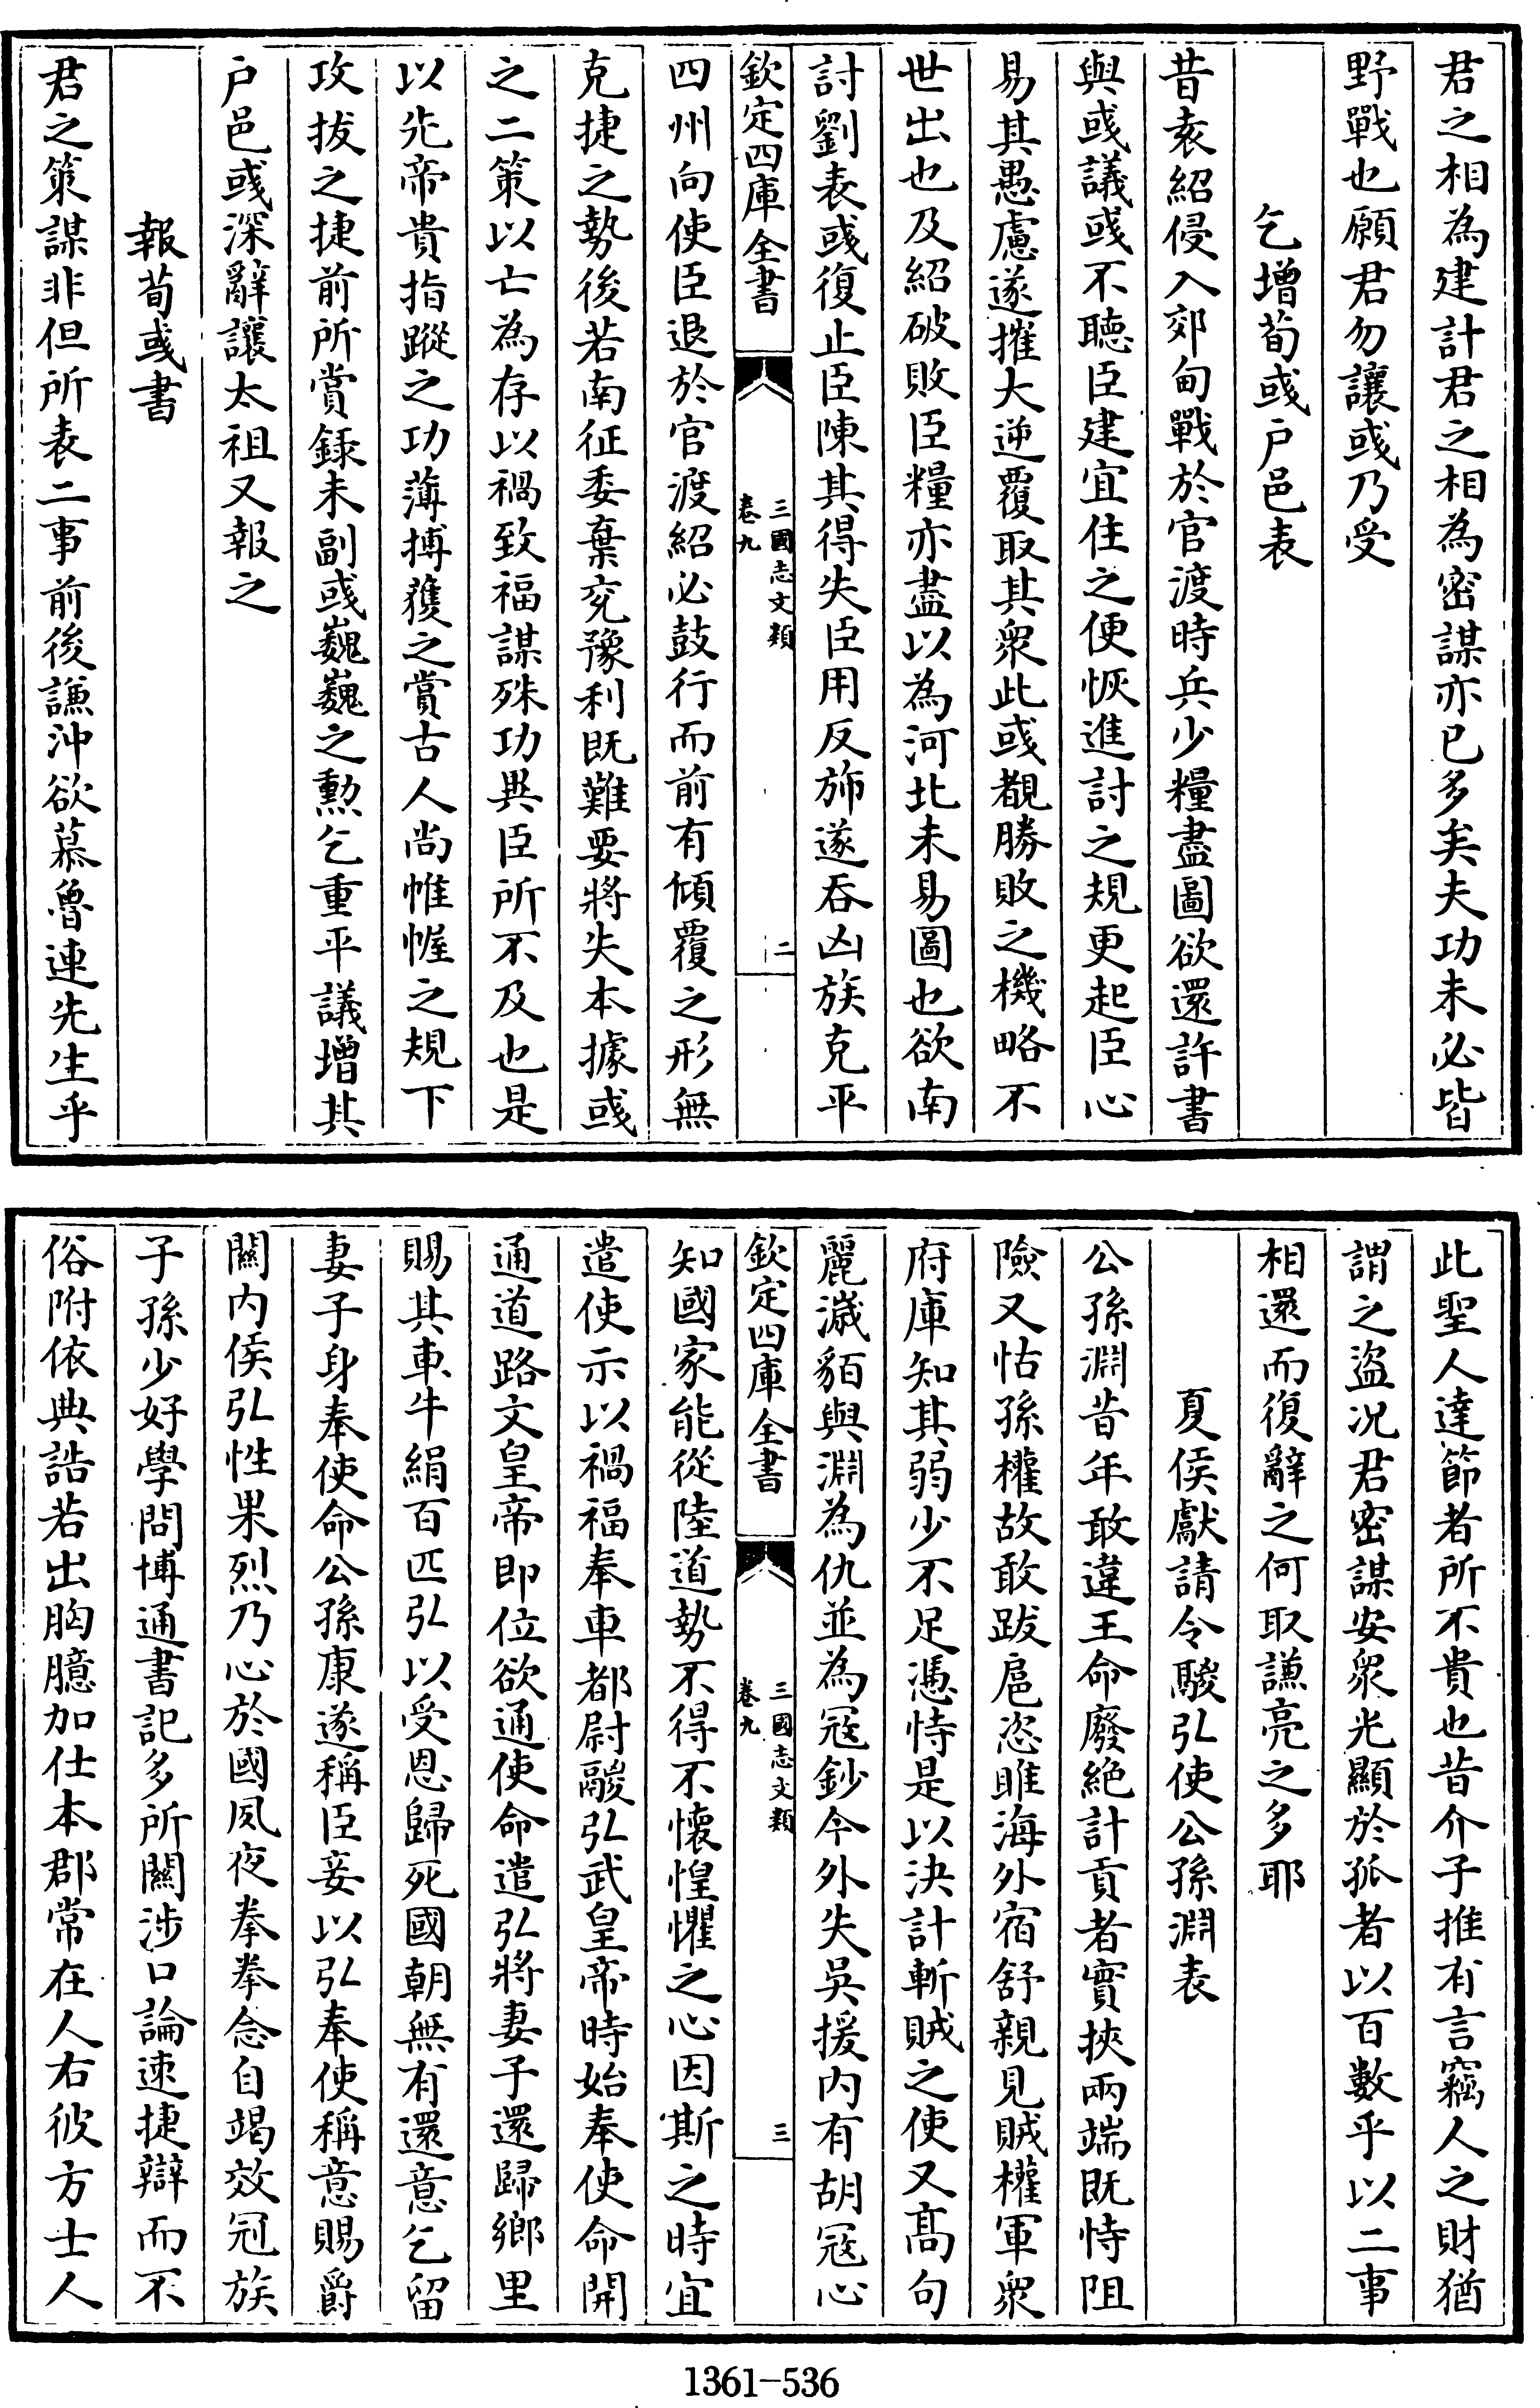 君之相為建計君之相為密謀亦已多矣夫功未必皆
野戰也願君勿讓彧乃受
乞增荀彧户邑表
昔袁紹侵入郊甸戰於官渡時兵少糧盡圖欲還許書
與彧議彧不聽臣建宜住之便恢進討之規更起臣心
易其愚慮遂摧大逆覆取其衆此彧覩勝敗之機略不
世出也及紹破敗臣糧亦盡以為河北未易圖也欲南
討劉表彧復止臣陳其得失臣用反斾遂吞凶族克平
欽定四庫全書
三國志文類
卷九
二
四州向使臣退於官渡紹必鼓行而前有傾覆之形無
克捷之勢後若南征委棄兖豫利既難要將失本據彧
之二策以亡為存以禍致福謀殊功異臣所不及也是
以先帝貴指蹤之功薄搏獲之賞古人尚帷幄之規下
攻拔之捷前所賞録未副彧巍巍之勲乞重平議增其
户邑彧深辭讓太祖又報之
報荀彧書
君之策謀非但所表二事前後謙沖欲慕魯連先生乎
此聖人達節者所不貴也昔介子推有言竊人之財猶
謂之盜況君密謀安衆光顯於孤者以百數乎以二事
相還而復辭之何取謙亮之多耶
夏侯獻請令駿弘使公孫淵表
公孫淵昔年敢違王命廢絶計貢者實挾兩端既恃阻
險又怙孫權故敢跋扈恣睢海外宿舒親見賊權軍衆
府庫知其弱少不足憑恃是以決計斬賊之使又髙句
麗濊貊與淵為仇並為冦鈔今外失吳援内有胡冦心
欽定四庫全書
三國志文類
卷九
三
知國家能從陸道勢不得不懷惶懼之心因斯之時宜
遣使示以禍福奉車都尉鬷弘武皇帝時始奉使命開
通道路文皇帝即位欲通使命遣弘將妻子還歸鄉里
賜其車牛絹百匹弘以受恩歸死國朝無有還意乞留
妻子身奉使命公孫康遂稱臣妾以弘奉使稱意賜爵
關内侯弘性果烈乃心於國夙夜拳拳念自竭效冠族
子孫少好學問博通書記多所關涉口論速捷辯而不
俗附依典誥若出胸臆加仕本郡常在人右彼方士人
1361-536